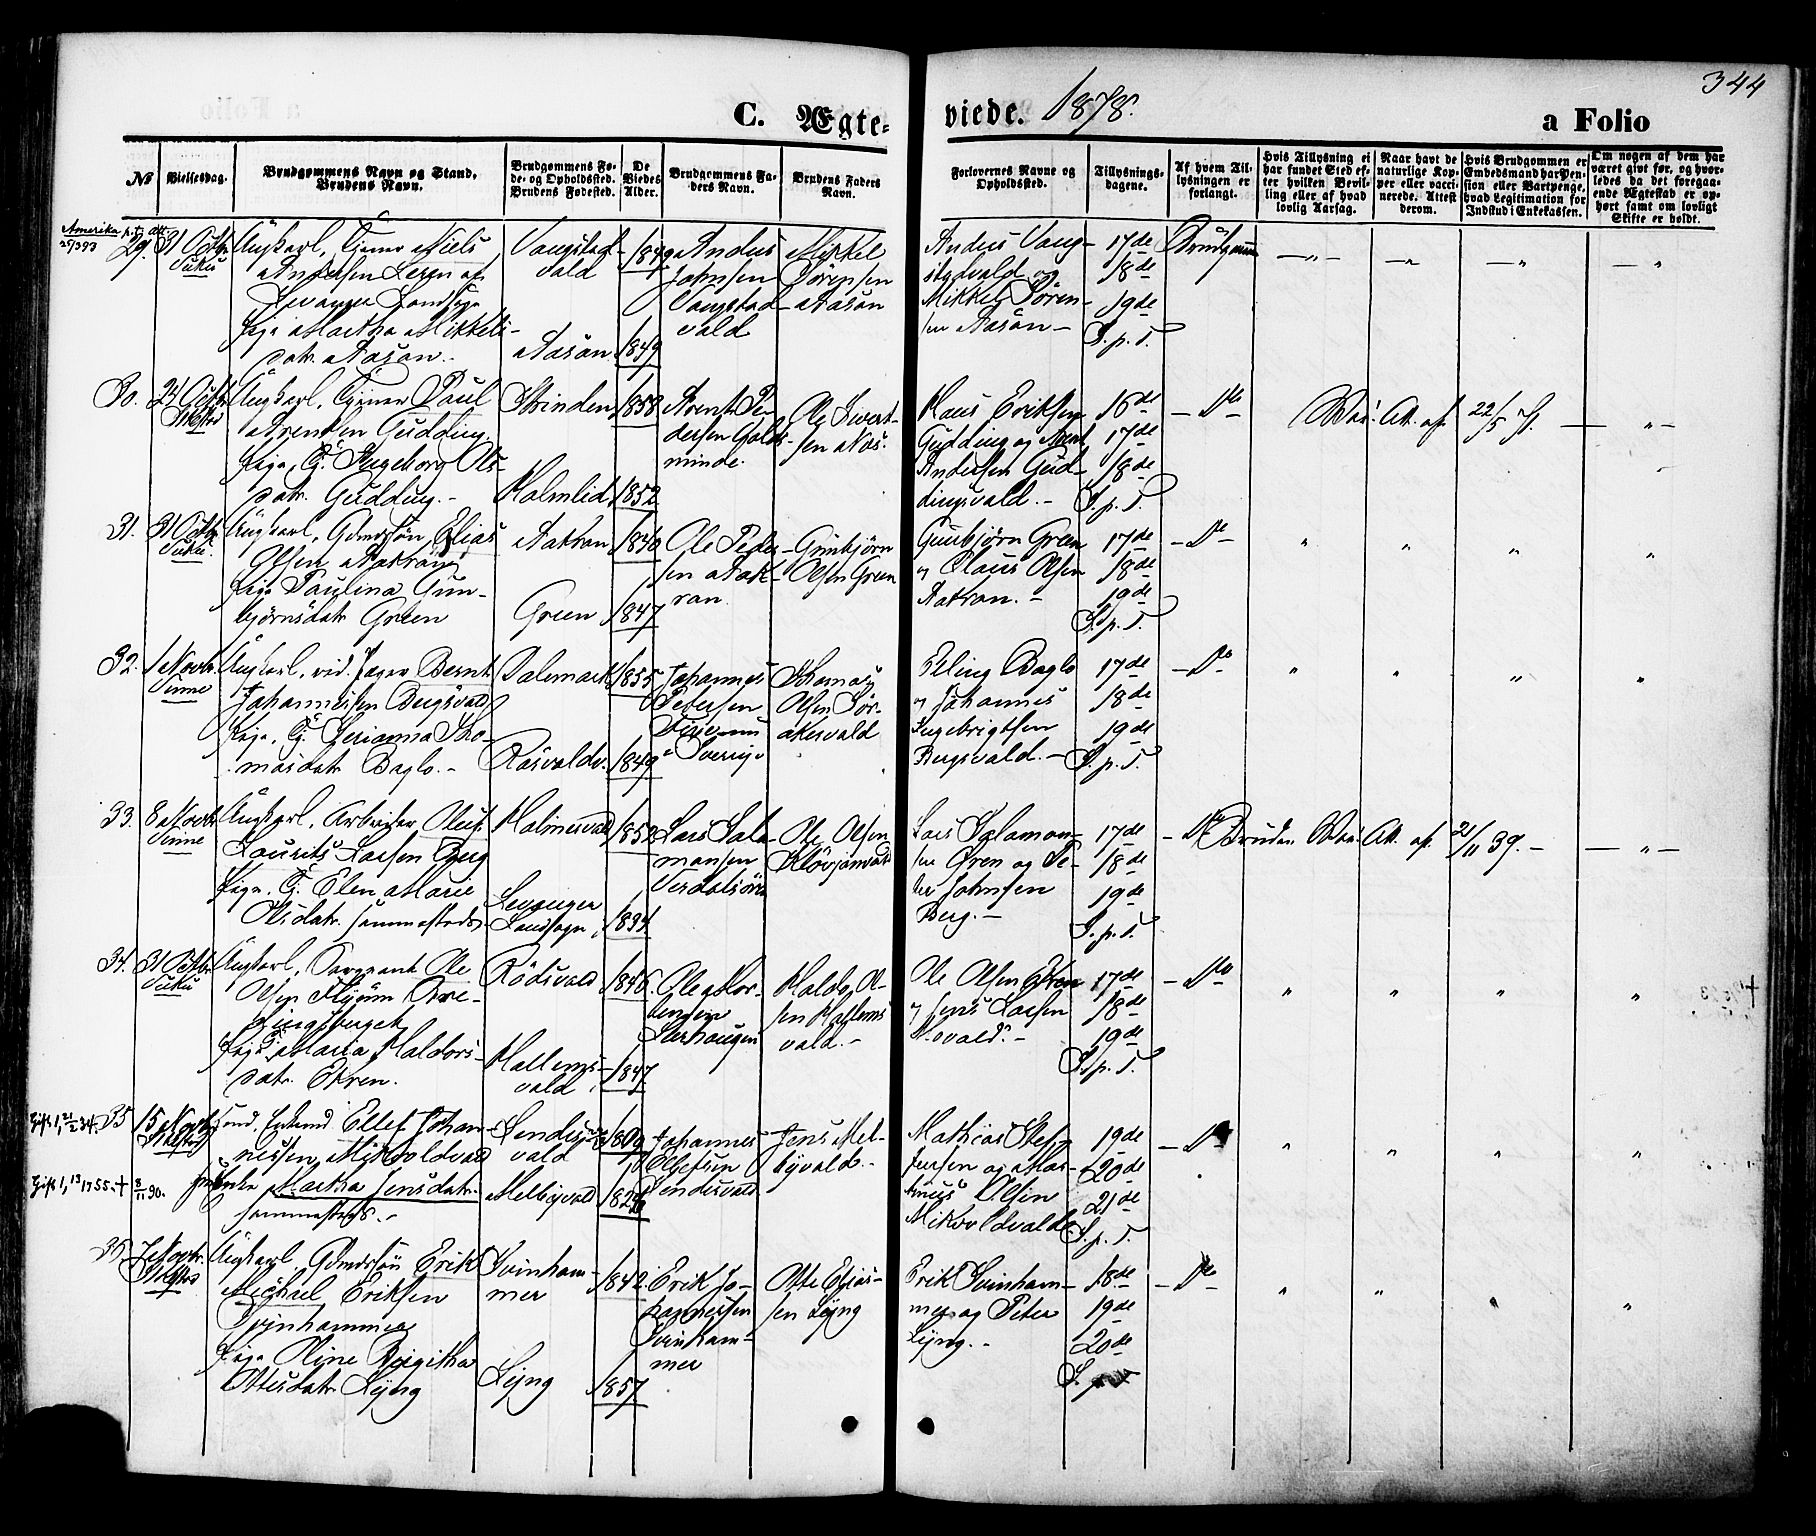 344
C. Ægteviede. 1878.
a Folio
No
Vielsesdag.
Brudgommens Navn og Stand,
Brudens Navn.
Brudgommens Fø-
de- og Opholdssted.
Brudens Fødested.
De
Viedes
Alder.
Brudgommens Fa-
ders Navn.
Brudens Faders
Navn.
Forlovernes Navne og
Opholdssted.
Tillysnings-
dagene.
Af hvem Til-
lysningen er
forlangt.
Hvis Tillysning ei
har fundet Sted ef-
ter hvilken Bevil-
ling eller af hvad
lovlig Aarsag.
Naar havt de
naturlige Kop-
per eller vacci-
nerede. Attest
derom.
Hvis Brudgommen er
Embedsmand har Pen-
sion eller Vartpenge,
hvad Legitimation for
Indskud i Enkekassen.
Om nogen af dem har
været gift før, og hvor-
ledes da det foregaa-
ende Ægteskab er op-
hørt samt om lovligt
Skifte er holdt.
Amerika p.t. att.
25/3 93
29. 31 Octbr.
Vuku
Ungkarl, Tjener Niels
Andersen
Levanger Landsogn
Pige Martha Mikkels-
datr. Aasan.
Vangstad-
vald
Aasan
1849
1849
Andus
Johnsen
Vangstad-
vald
Mikkel
Sørensen
Aasan
Andus Vang-
stadvald og
Mikkel Søren-
sen Aasan
17de
18de
19de
S. p. T.
Brudgommen
30. 24 Octbr.
Ungkarl, Tjener Paul
Arentsen Gudding.
Pige, Tj. Ingeborg Ols-
datr. Gudding.
Strinden
Holmlid
1858
1852
Arent Pe-
dersen Gold-
minde.
Ole Ivert-
sen
Hans Eriksen
Gudding og Arnt
Andersen Gud-
dingsvald.
16de
17de
18de
S. p. T.
Do
Vac. Att. af 22/5
31. 31 Octbr.
Vuku.
Ungkarl, Gdmdssøn, Elias
Olsen Aakran
Pige Paulina Gun-
bjørnsdatr Green
Aakran
Green
1840
1847
Ole Peder-
sen Aak-
ran
Gunbjørn
Olsen Green
Gunbjørn Green
og Olaus Olsen
Aakran.
17de
18de
19de
S. p. T.
Do
32. 1 Novbr.
Vinne
Ungkarl, Bernt
Johannessen Bergsvald
Pige, Tj. Tho-
masdatr Baglo.
Dalemark
Røsvaldv.
1855
1849
Johannes
Petersen
Sverige
Thomas
Olsen Sør-
akervald
Elling Baglo
og Johannes
Ingebrigtsen
Bergsvald.
17de
18de
19de
S. p. T.
Do
33. 8 Novbr.
Vinne
Ungkarl, Arbeider Oluf
Laurits Larsen Berg
Pige, Tj. Elen Marie
Olsdatr. sammesteds
Holmesvald
Levanger
Landsogn
1852
1834
Lars Salo-
monsen
Verdalsøren
Ole Olsen
Lars Salomon-
sen Øren og Pe-
ter Johnsen
Berg.
17de
18de
19de
S. p. T.
Do
Bruden Vac. Att. af 21/11 39.
34. 31 Octbr.
Vuku
Ungkarl, Sergeant Ole
Olsen
Pige, Maria Haldors-
datr. Ekren.
Rødsvald
Hallems-
vald
1846.
1847
Ole Mor-
tensen
Lerhaugen
Haldo Ol-
sen Hallems
vald.
Ole Olsen Ekren
og Jens Larsen
17de
18de
19de
S. p. T.
Do
Gift 1, 21/2 34.
35 15 Novbr.
Enkemd Ellef Johan-
nessen Mikvoldvald
Gift 1, 13/1 55. † 8/11 90.
Enke Martha Jensdatr.
sammesteds.
Sendes-
vald
Melbyvald
1809
1826
Johannes
Ellefsen
Sendesvald
Jens Mel-
byvald.
Mathias
Jensen og Mar-
tinus Olsen
Mikvoldvald
19de
20de
21de
S. p. T.
Do
36. 7 Novbr.
Ungkarl, Gdmdssøn Erik
Michael Eriksen
Svinhammer
Pige Oline Birgitha
Ottesdatr Lyng
Svinham-
mer
Lyng
1842.
1857
Erik Jo-
hannessen
Svinham-
mer
Otte Elias-
sen Lyng
Erik Svinham-
mer og Peter
Lyng.
18de
19de
20de
S. p. T.
Do